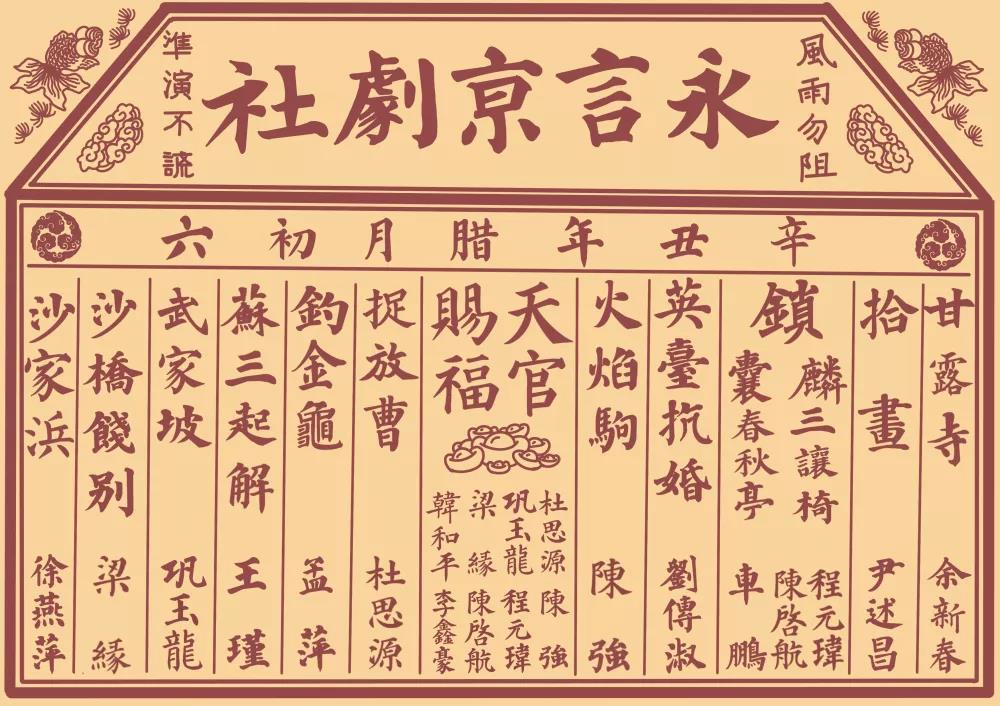 風雨勿阻
永言亰劇社
準演不謊
辛丑年腊月初六
甘露寺
余新春
拾畫
尹述昌
鎖
麟囊
三讓椅
春秋亭
程元瑋
陳啓航
車鵬
英臺抗婚
劉傳淑
火焰駒
陳強
天官
賜福
杜思源
陳強
巩玉龍
程元瑋
梁緣
陳啓航
韓和平
李鑫豪
捉放曹
杜思源
釣金龜
孟萍
蘇三起解
王瑾
武家坡
巩玉龍
沙橋餞別
梁緣
沙家浜
徐燕萍